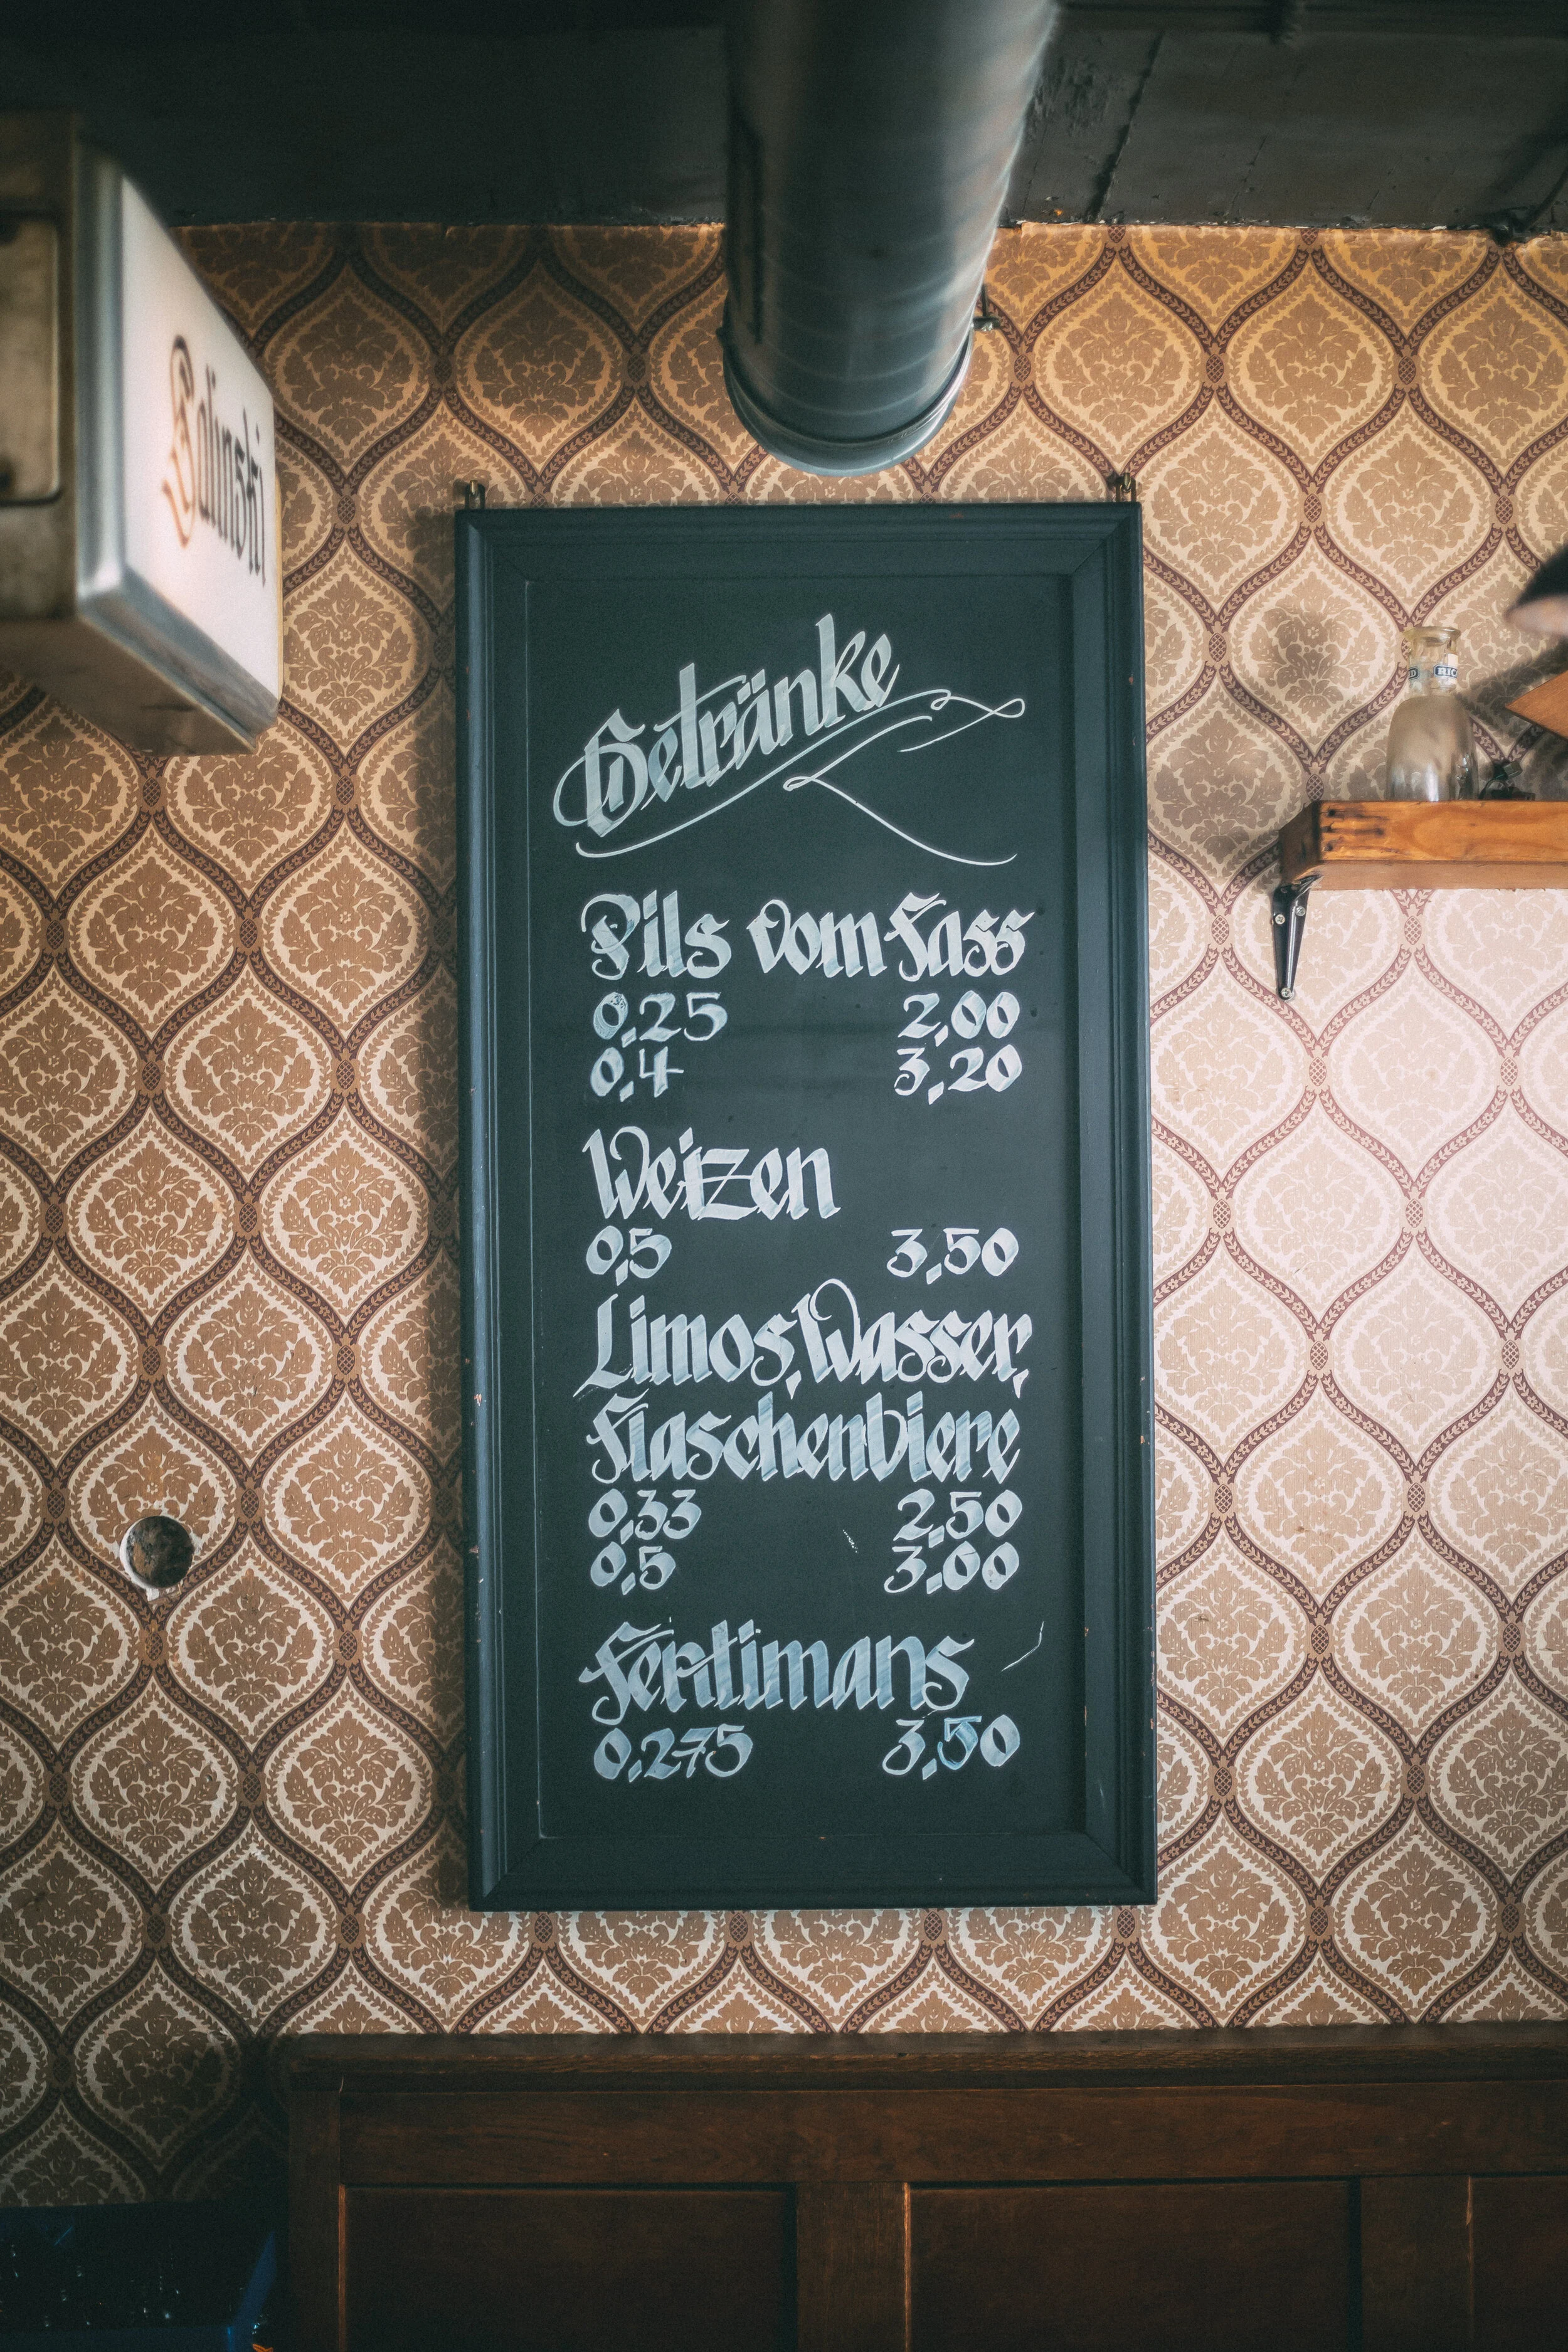 Solinski
Getränke
Pils vom Fass
0,25 2,00
0,4 3,20
Weizen
0,5 3,50
Limos, Wasser,
Flaschenbiere
0,33 2,50
0,5 3,00
Fentimans
0,275 3,50